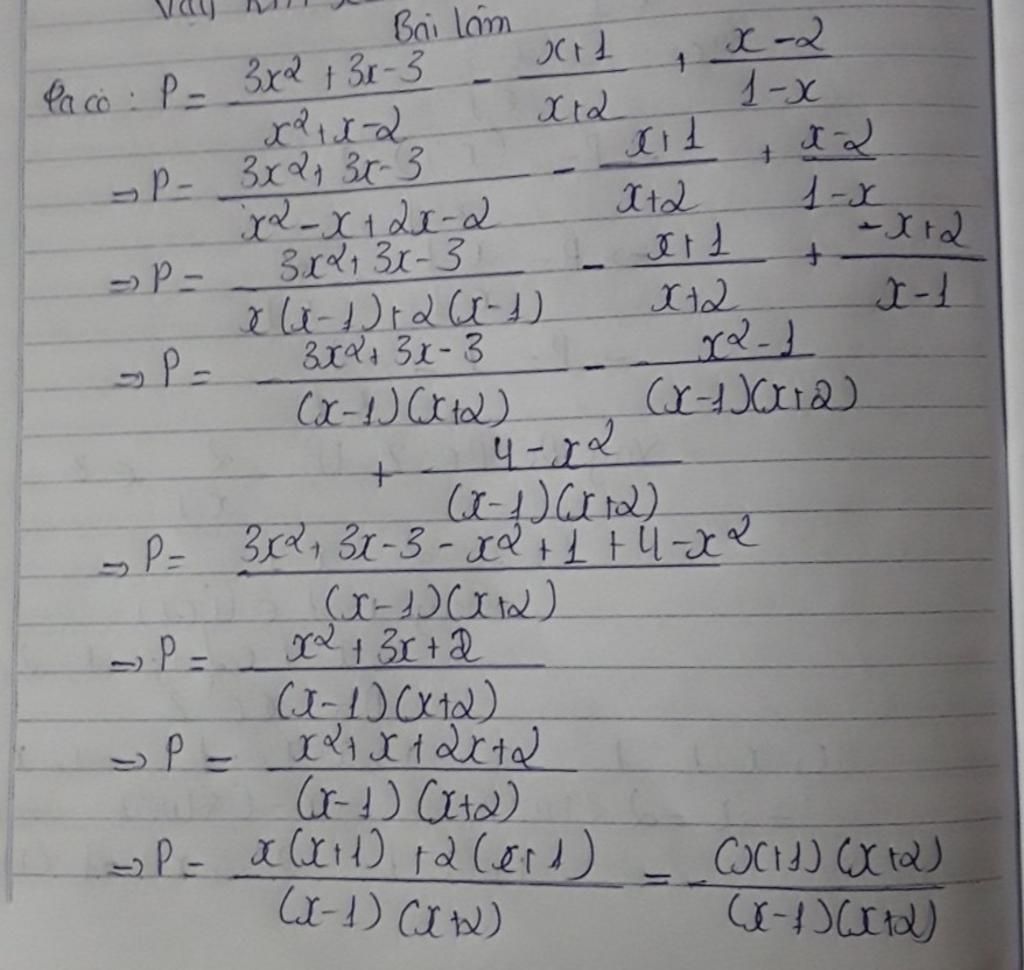 Bài làm
Ta có : P = (3x² + 3x - 3)/(x² + x - 2) - (x + 1)/(x + 2) + (x - 2)/(1 - x)
⇒ P = (3x² + 3x - 3)/(x² - x + 2x - 2) - (x + 1)/(x + 2) + (x - 2)/(1 - x)
⇒ P = (3x² + 3x - 3)/(x(x - 1) + 2(x - 1)) - (x + 1)/(x + 2) + (-x + 2)/(x - 1)
⇒ P = (3x² + 3x - 3)/((x - 1)(x + 2)) - (x² - 1)/((x - 1)(x + 2))
+ (4 - x²)/((x - 1)(x + 2))
⇒ P = (3x² + 3x - 3 - x² + 1 + 4 - x²)/((x - 1)(x + 2))
⇒ P = (x² + 3x + 2)/((x - 1)(x + 2))
⇒ P = (x² + x + 2x + 2)/((x - 1)(x + 2))
⇒ P = (x(x + 1) + 2(x + 1))/((x - 1)(x + 2)) = ((x + 1)(x + 2))/((x - 1)(x + 2))